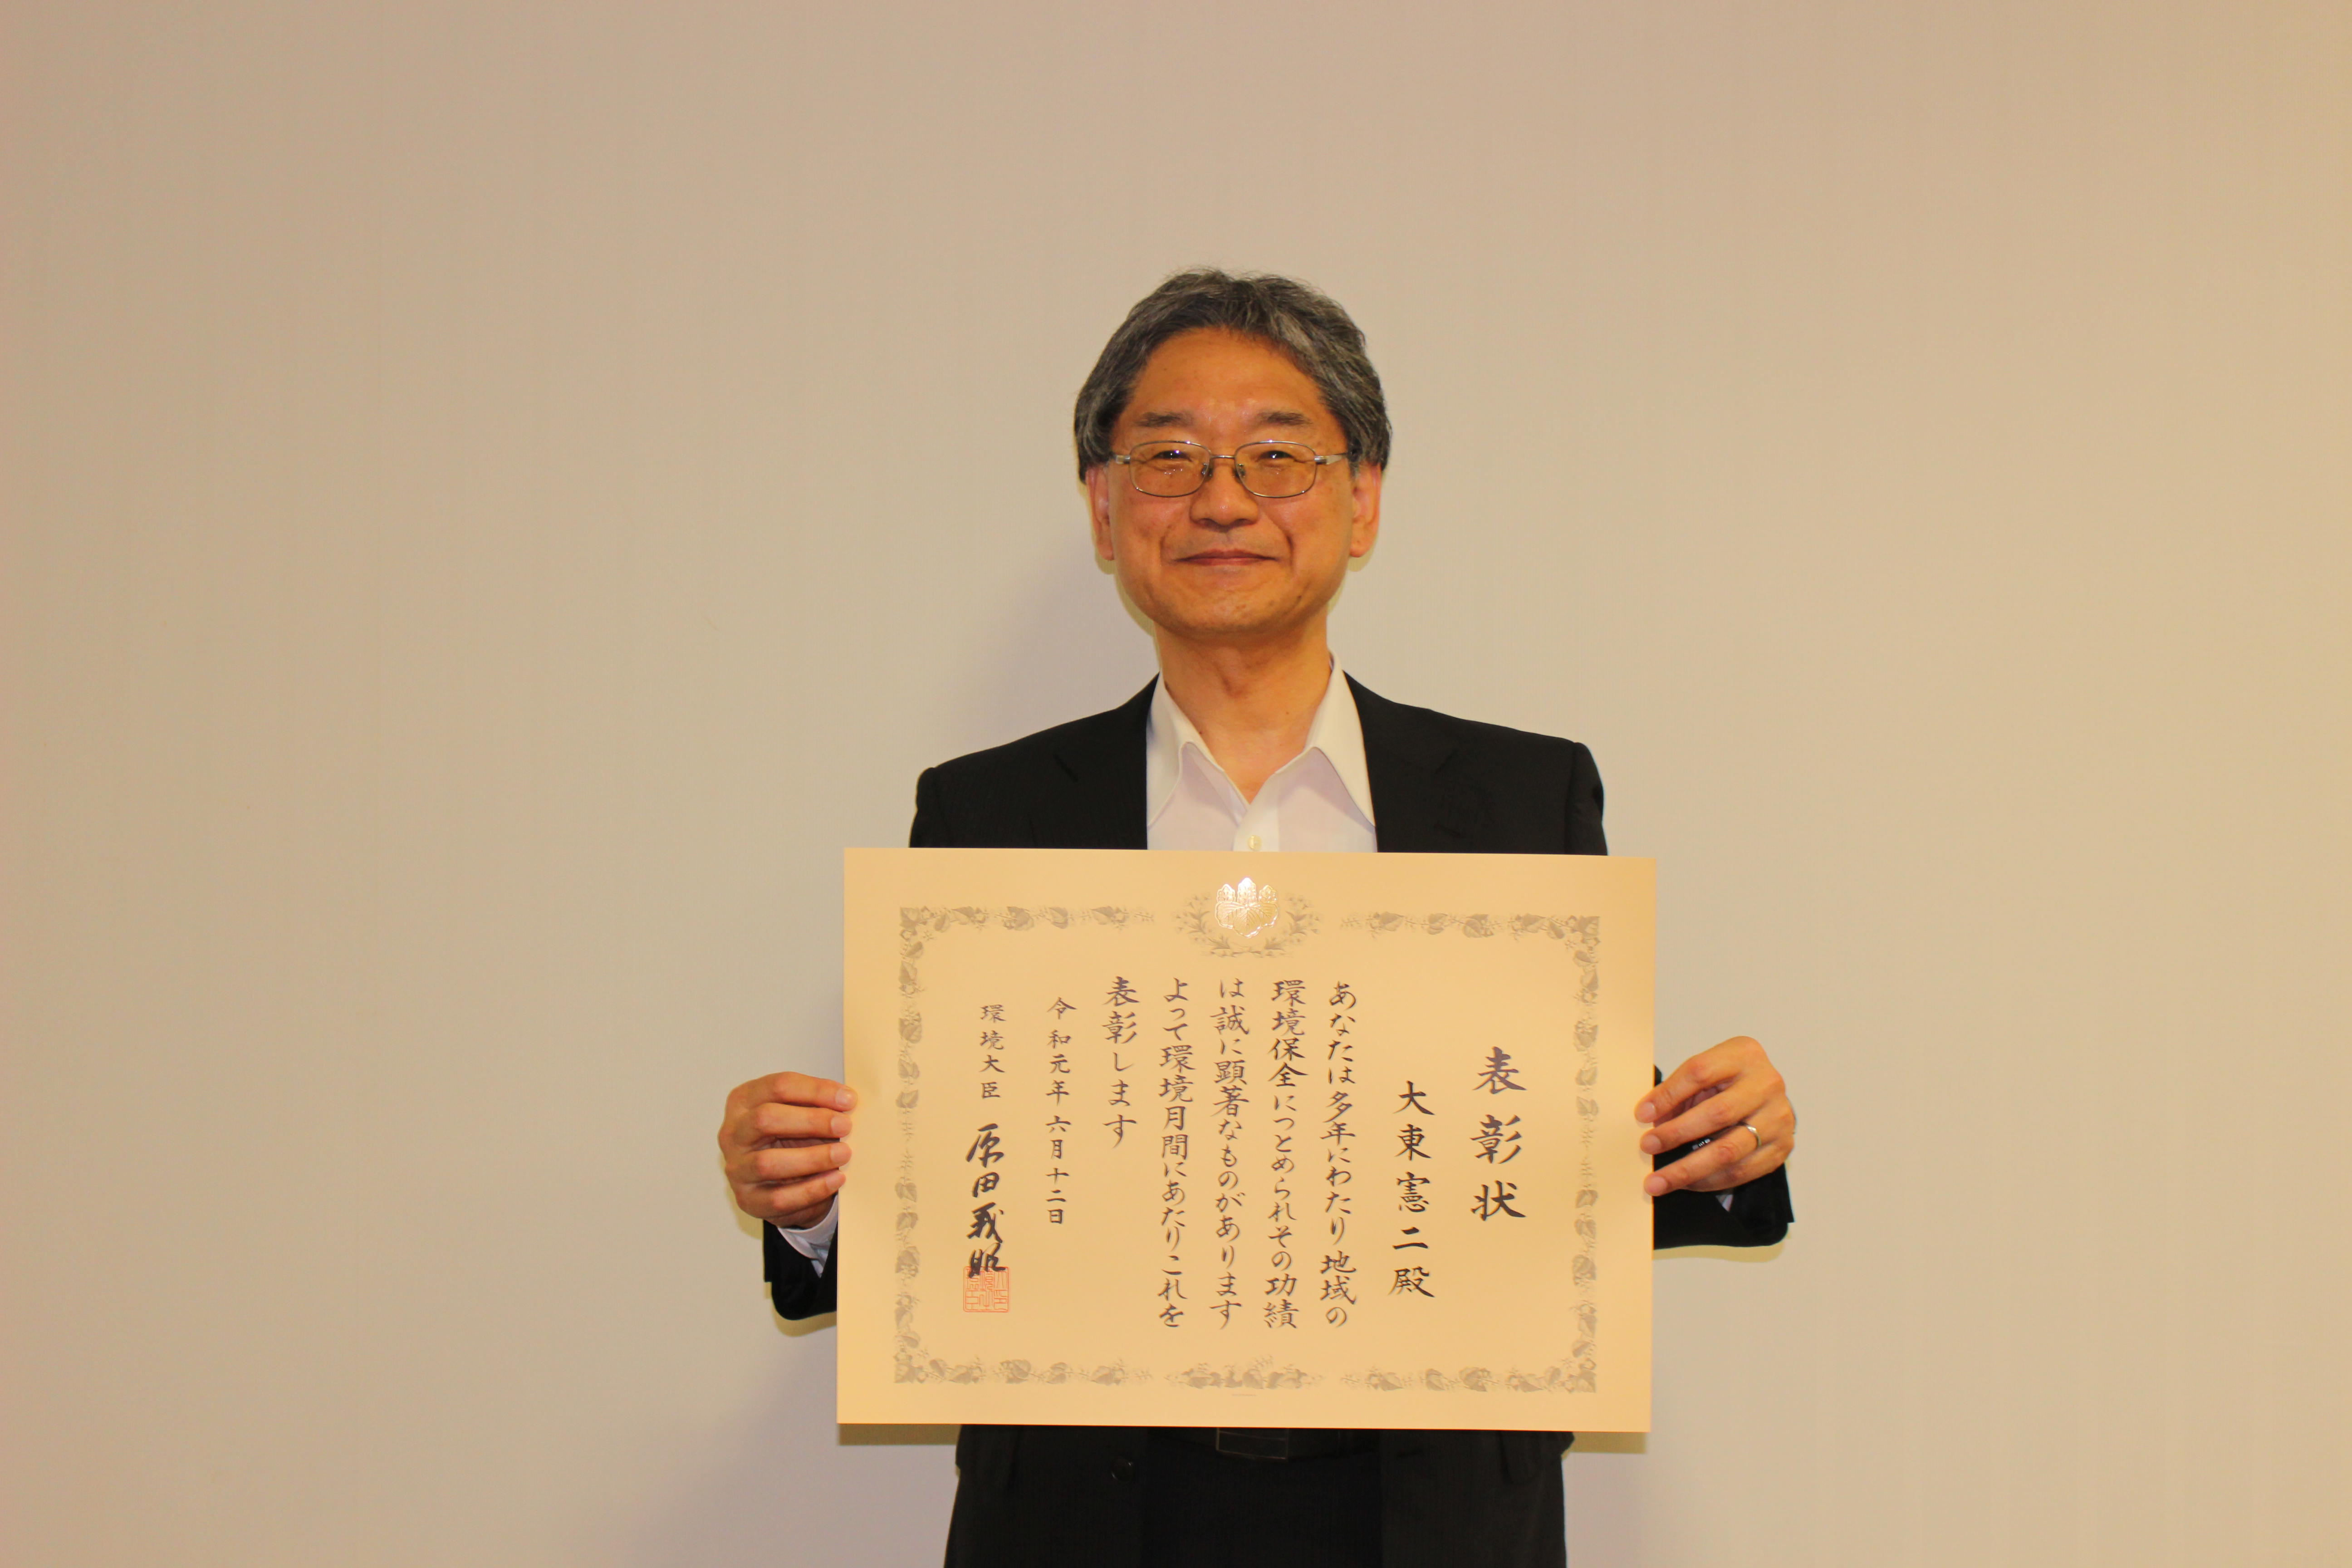 表彰状
大東憲二殿
あなたは多年にわたり地域の
環境保全につとめられその功績
は誠に顕著なものがあります
よって環境月間にあたりこれを
表彰します
令和元年六月十二日
環境大臣 原田義昭